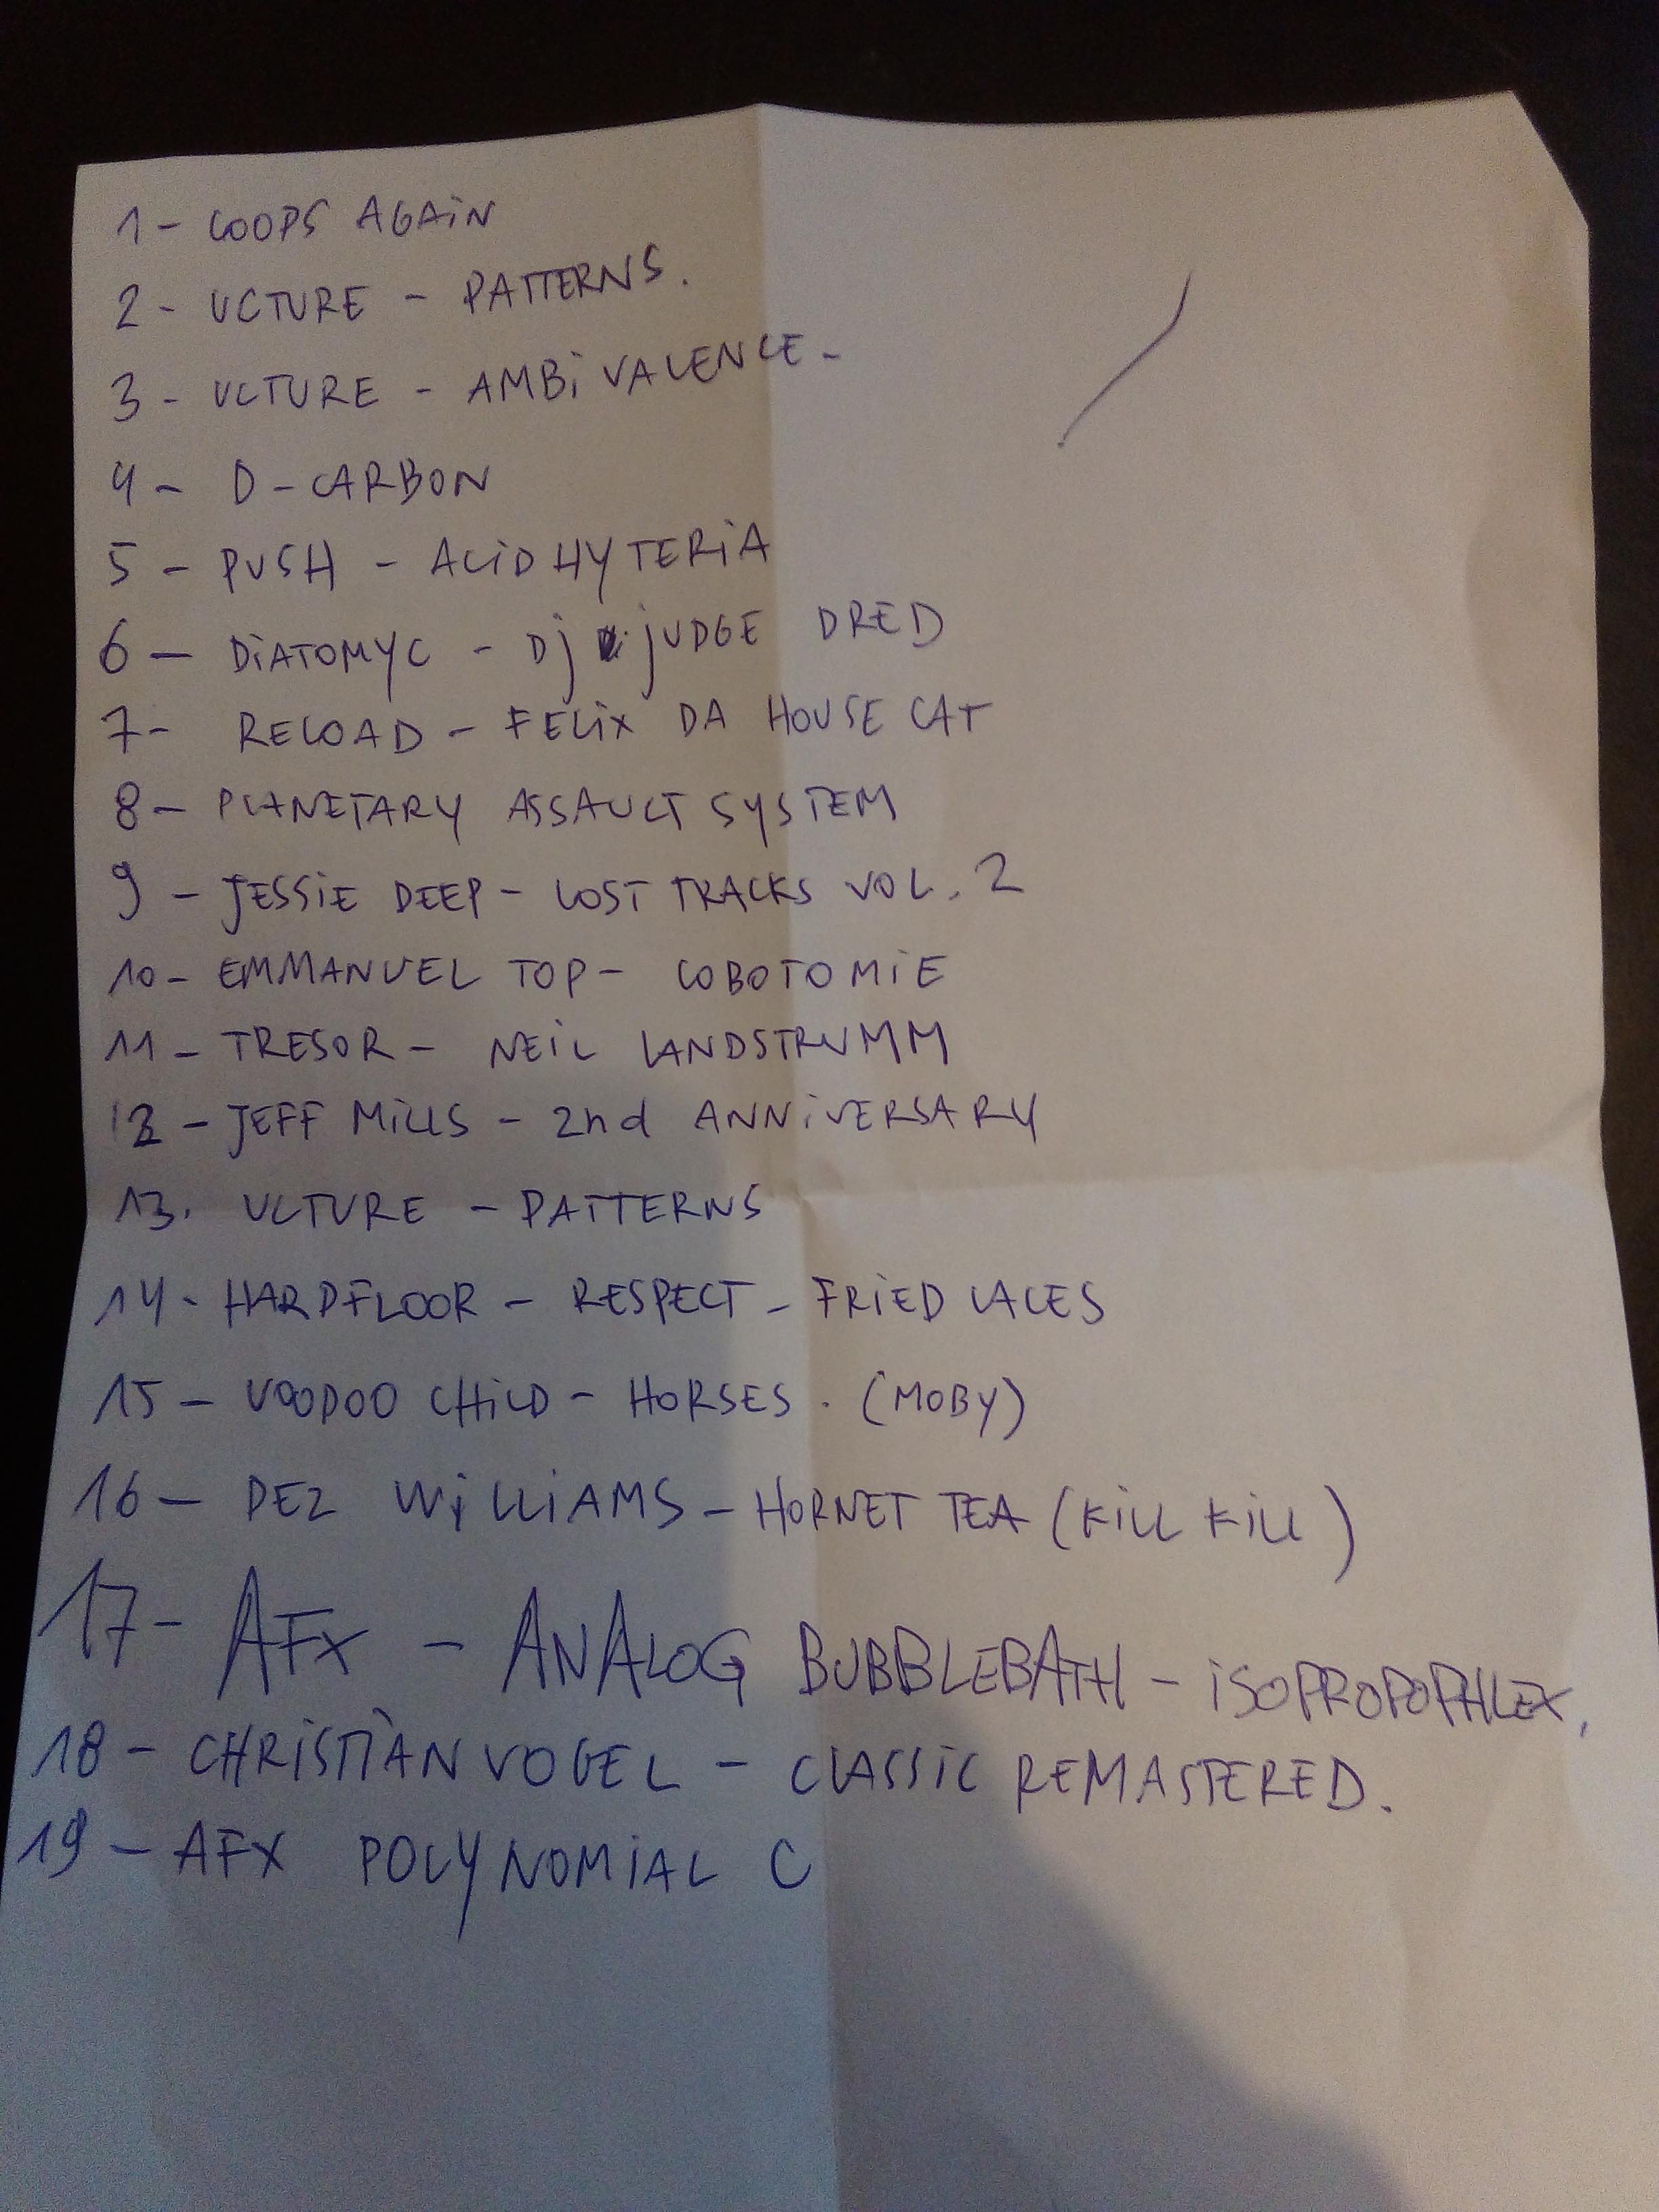 1- LOOPS AGAiN
2- ULTURE - PATTERNS.
3- ULTURE - AMBiVALENCE-
4- D-CARBON
5- PUSH - ACiD HYTERiA
6- DiATOMYC - Dj jUDGE DRED
7- RELOAD - FELiX DA HOUSE CAT
8- PLANETARY ASSAULT SYSTEM
9- JESSiE DEEP - LOST TRACKS VOL. 2
10- EMMANUEL TOP- LOBOTOMiE
11- TRESOR- NEiL LANDSTRUMM
12- JEFF MiLLS - 2nd ANNiVERSARY
13. ULTURE - PATTERNS
14- HARDFLOOR - RESPECT - FRiED LACES
15- VOODOO CHiLD - HORSES. (MOBY)
16- DEZ WiLLiAMS - HORNET TEA (KiLL KiLL)
17- AFX - ANALOG BUBBLEBATH - iSOPROPOPHLEX.
18- CHRiSTiAN VOGEL - CLASSiC REMASTERED.
19- AFX POLYNOMiAL C